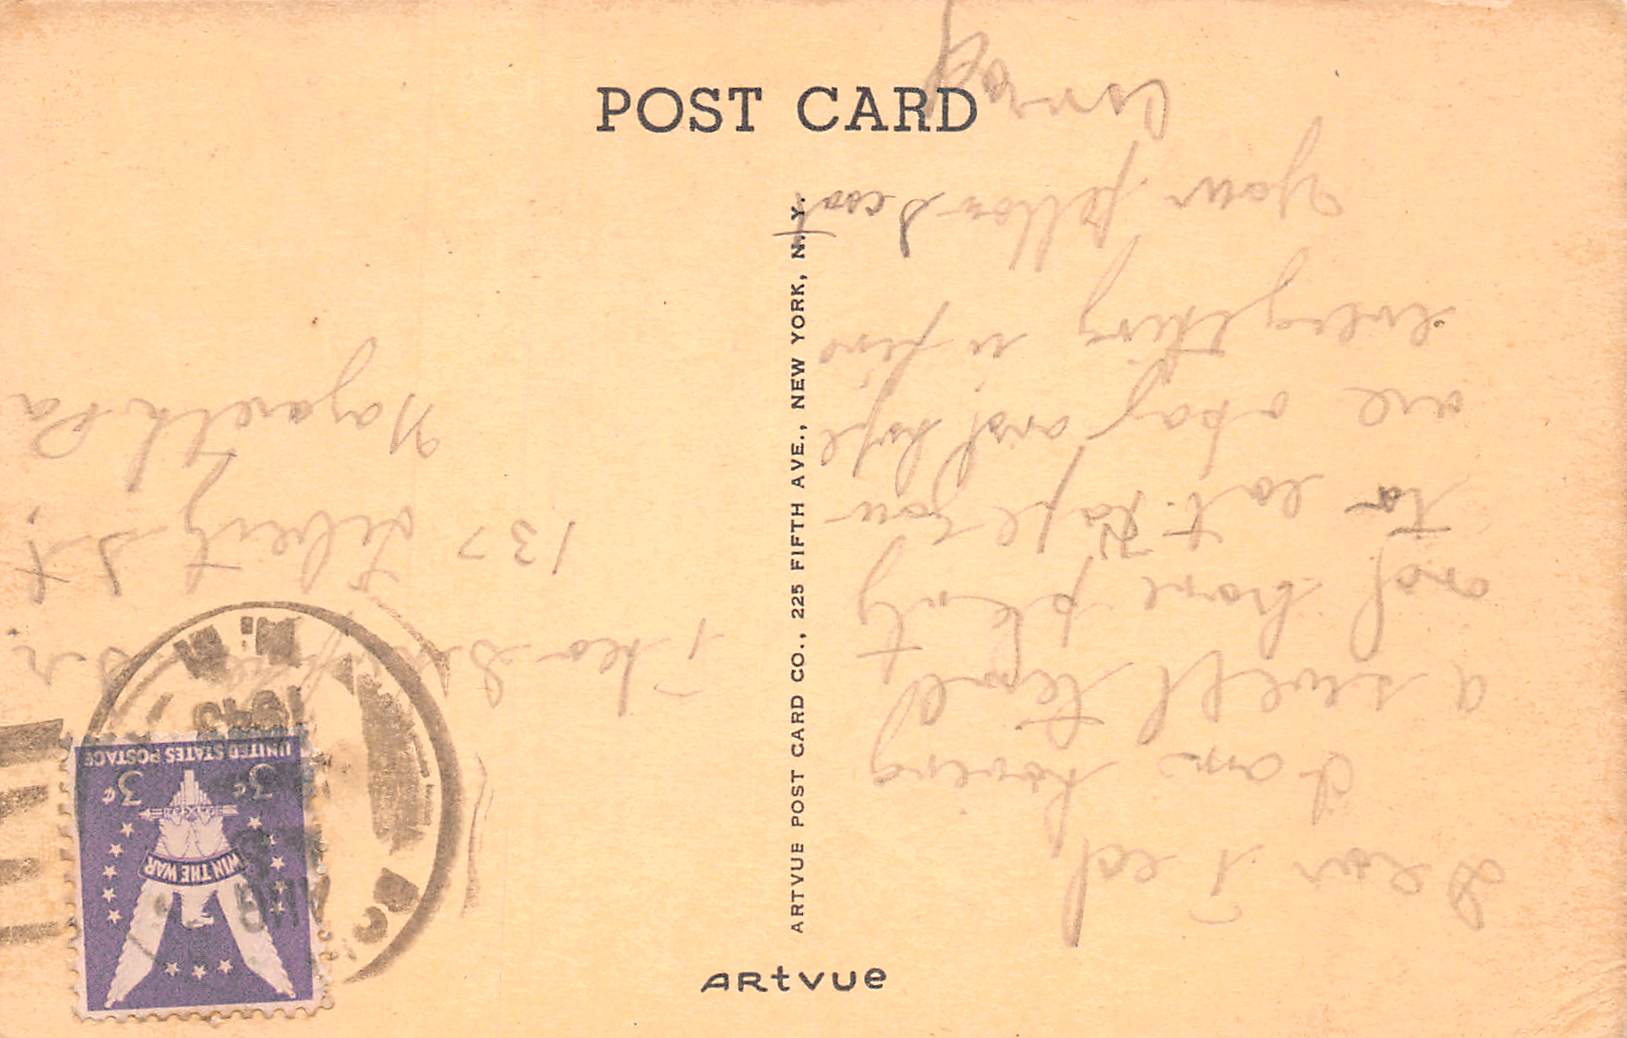 POST CARD
ARTVUE POST CARD CO., 225 FIFTH AVE., NEW YORK, N.Y.
ARtvue
Dear Ted,
I am having
a swell time
and have plenty
to eat. Hope you
are okay and hope
everything is fine
Your fellow Scout
137 Liberty St,
Nazareth Pa
UNITED STATES POSTAGE
3¢ 3¢
WIN THE WAR
AUG
1943